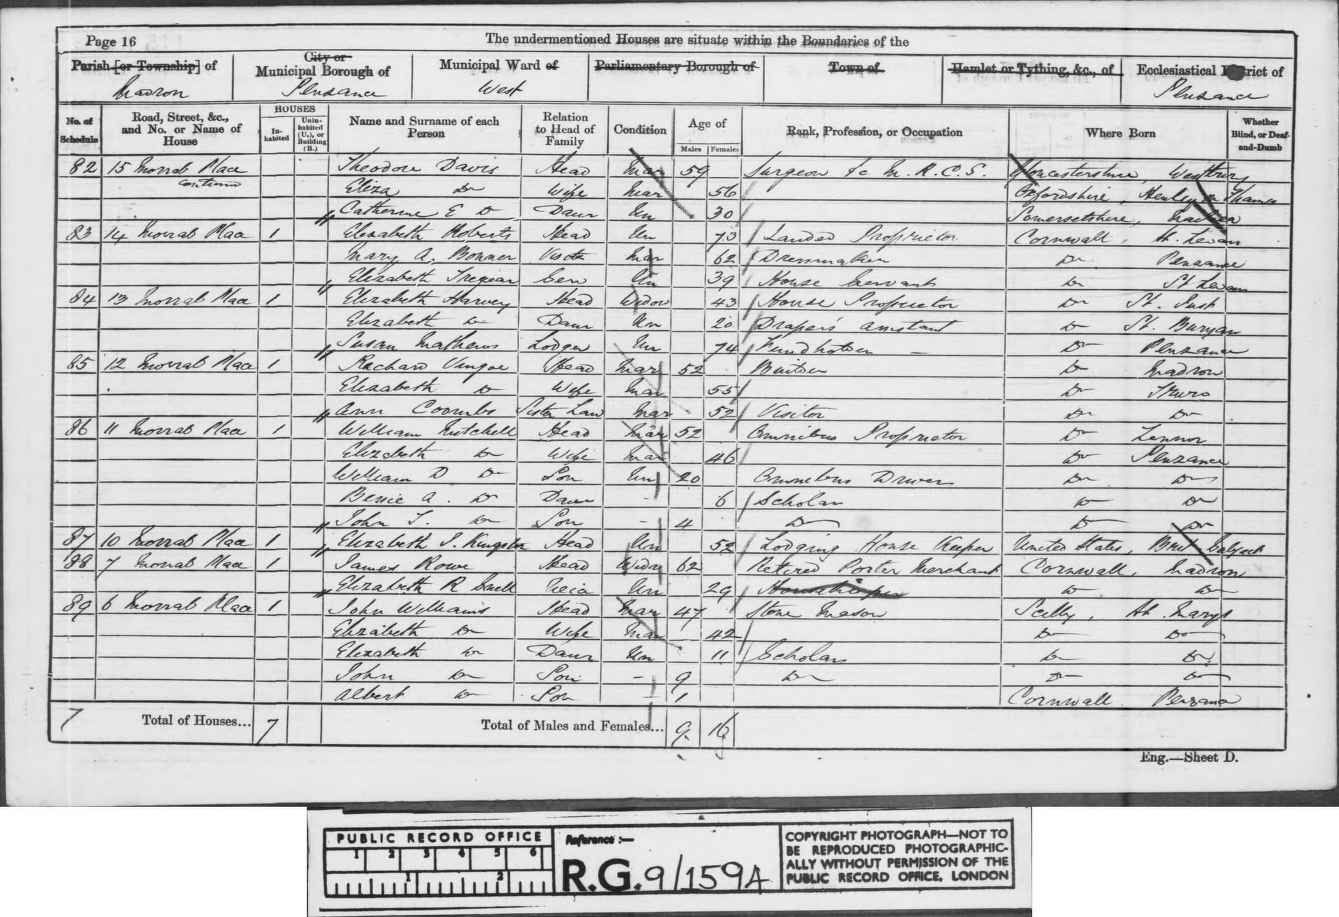 Page 16
The undermentioned Houses are situate within the Boundaries of the
Parish [or Township] of
City or Municipal Borough of
Municipal Ward of
Parliamentary Borough of
Town of
Hamlet or Tything, &c., of
Ecclesiastical District of
Madron Penzance West Penzance
No. of Schedule
Road, Street, &c., and No. or Name of House
HOUSES
In-habited
Unin-habited (U.), or Building (B.)
Name and Surname of each Person
Relation to Head of Family
Condition
Age of
Males
Females
Rank, Profession, or Occupation
Where Born
Whether Blind, or Deaf-and-Dumb
82 15 Morrab Place Theodore Davis Head Mar 59 Surgeon &c M.R.C.S. Gloucestershire, Westbury
continued Eliza Do Wife Mar 56 Oxfordshire, Henley on Thames
Catherine E Do Daur Un 30 Somersetshire,
83 14 Morrab Place 1 Elizabeth Roberts Head Un 73 Landed Proprietor Cornwall, St. Levan
Mary A. Bonner Mar 62 Dressmaker Do Penzance
Elizabeth Tregear Serv Un 39 House Servant Do St Levan
84 13 Morrab Place 1 Elizabeth Harvey Head Widow 43 House Proprietor Do St. Just
Elizabeth Do Daur Un 20 Draper's assistant Do St. Buryan
Susan Mathews Lodger Un 74 Fundholder Do Penzance
85 12 Morrab Place 1 Richard Head Mar 52 Builder Do Madron
Elizabeth Do Wife Mar 55 Do Truro
Ann Coombs Sister Law Mar 52 Visitor Do Do
86 11 Morrab Place 1 William Mitchell Head Mar 52 Omnibus Proprietor Do Zennor
Elizabeth Do Wife Mar 46 Do Penzance
William D Do Son Un 20 Omnibus Driver Do Do
A. Do Daur 6 Scholar Do Do
John T. Do Son - 4 Do Do Do
87 10 Morrab Place 1 Elizabeth S. Head Un 52 Lodging House Keeper United States, Brit Subject
88 7 Morrab Place 1 James Rowe Head Widr 62 Retired Porter Merchant Cornwall, Madron
Elizabeth R Snell Neice Un 29 Housekeeper Do Do
89 6 Morrab Place 1 John Williams Head Mar 47 Stone Mason Scilly, St. Marys
Elizabeth Do Wife Mar 42 Do Do
Elizabeth Do Daur Un 11 Scholar Do Do
John Do Son - 9 Do Do Do
Albert Do Son - 1 Cornwall Penzance
7 Total of Houses... 7 Total of Males and Females... 9 16
Eng.—Sheet D.
PUBLIC RECORD OFFICE
1 2 3 4 5 6
1 2
Reference :—
R.G. 9/1594
COPYRIGHT PHOTOGRAPH—NOT TO
BE REPRODUCED PHOTOGRAPHIC-
ALLY WITHOUT PERMISSION OF THE
PUBLIC RECORD OFFICE, LONDON